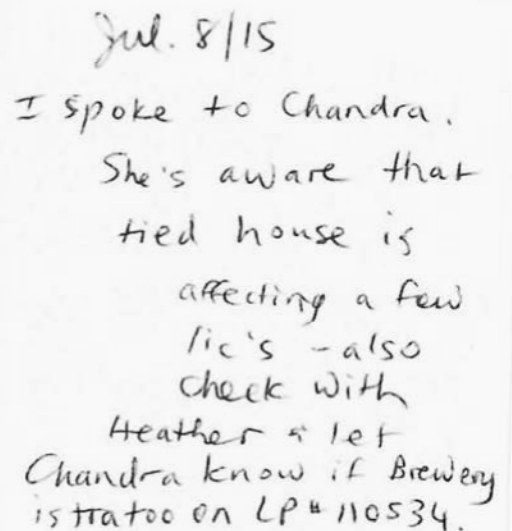 Jul. 8/15
I spoke to Chandra.
She's aware that
tied house is
affecting a few
lic's - also
check with
Heather & let
Chandra know if Brewery
is tratoo on LP# 110534.